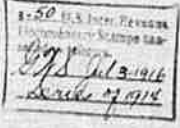 $ .50 U.S. Inter. Revenue
Documentary Stamps can-
G.N.S. Jul 3-1916
Series of 1914